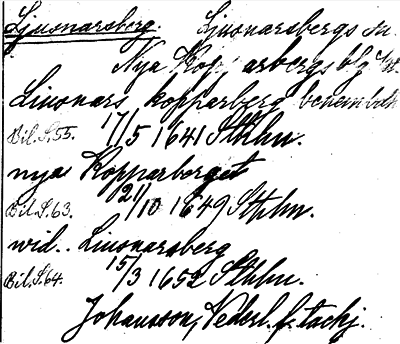 Ljusnarsberg. Ljusnarsbergs sn.
Nya Kop arbergs blg
Liusnars kopparberg
Bil. S. 55. 17/5 1641 Sthlm.
nya Kopparberget
Bil. S. 63. 21/10 1649 Sthlm.
wid.. Liusnarsberg
Bil. S. 64. 15/3 1652 Sthlm.
Johansson, Nederl. f. tackj.